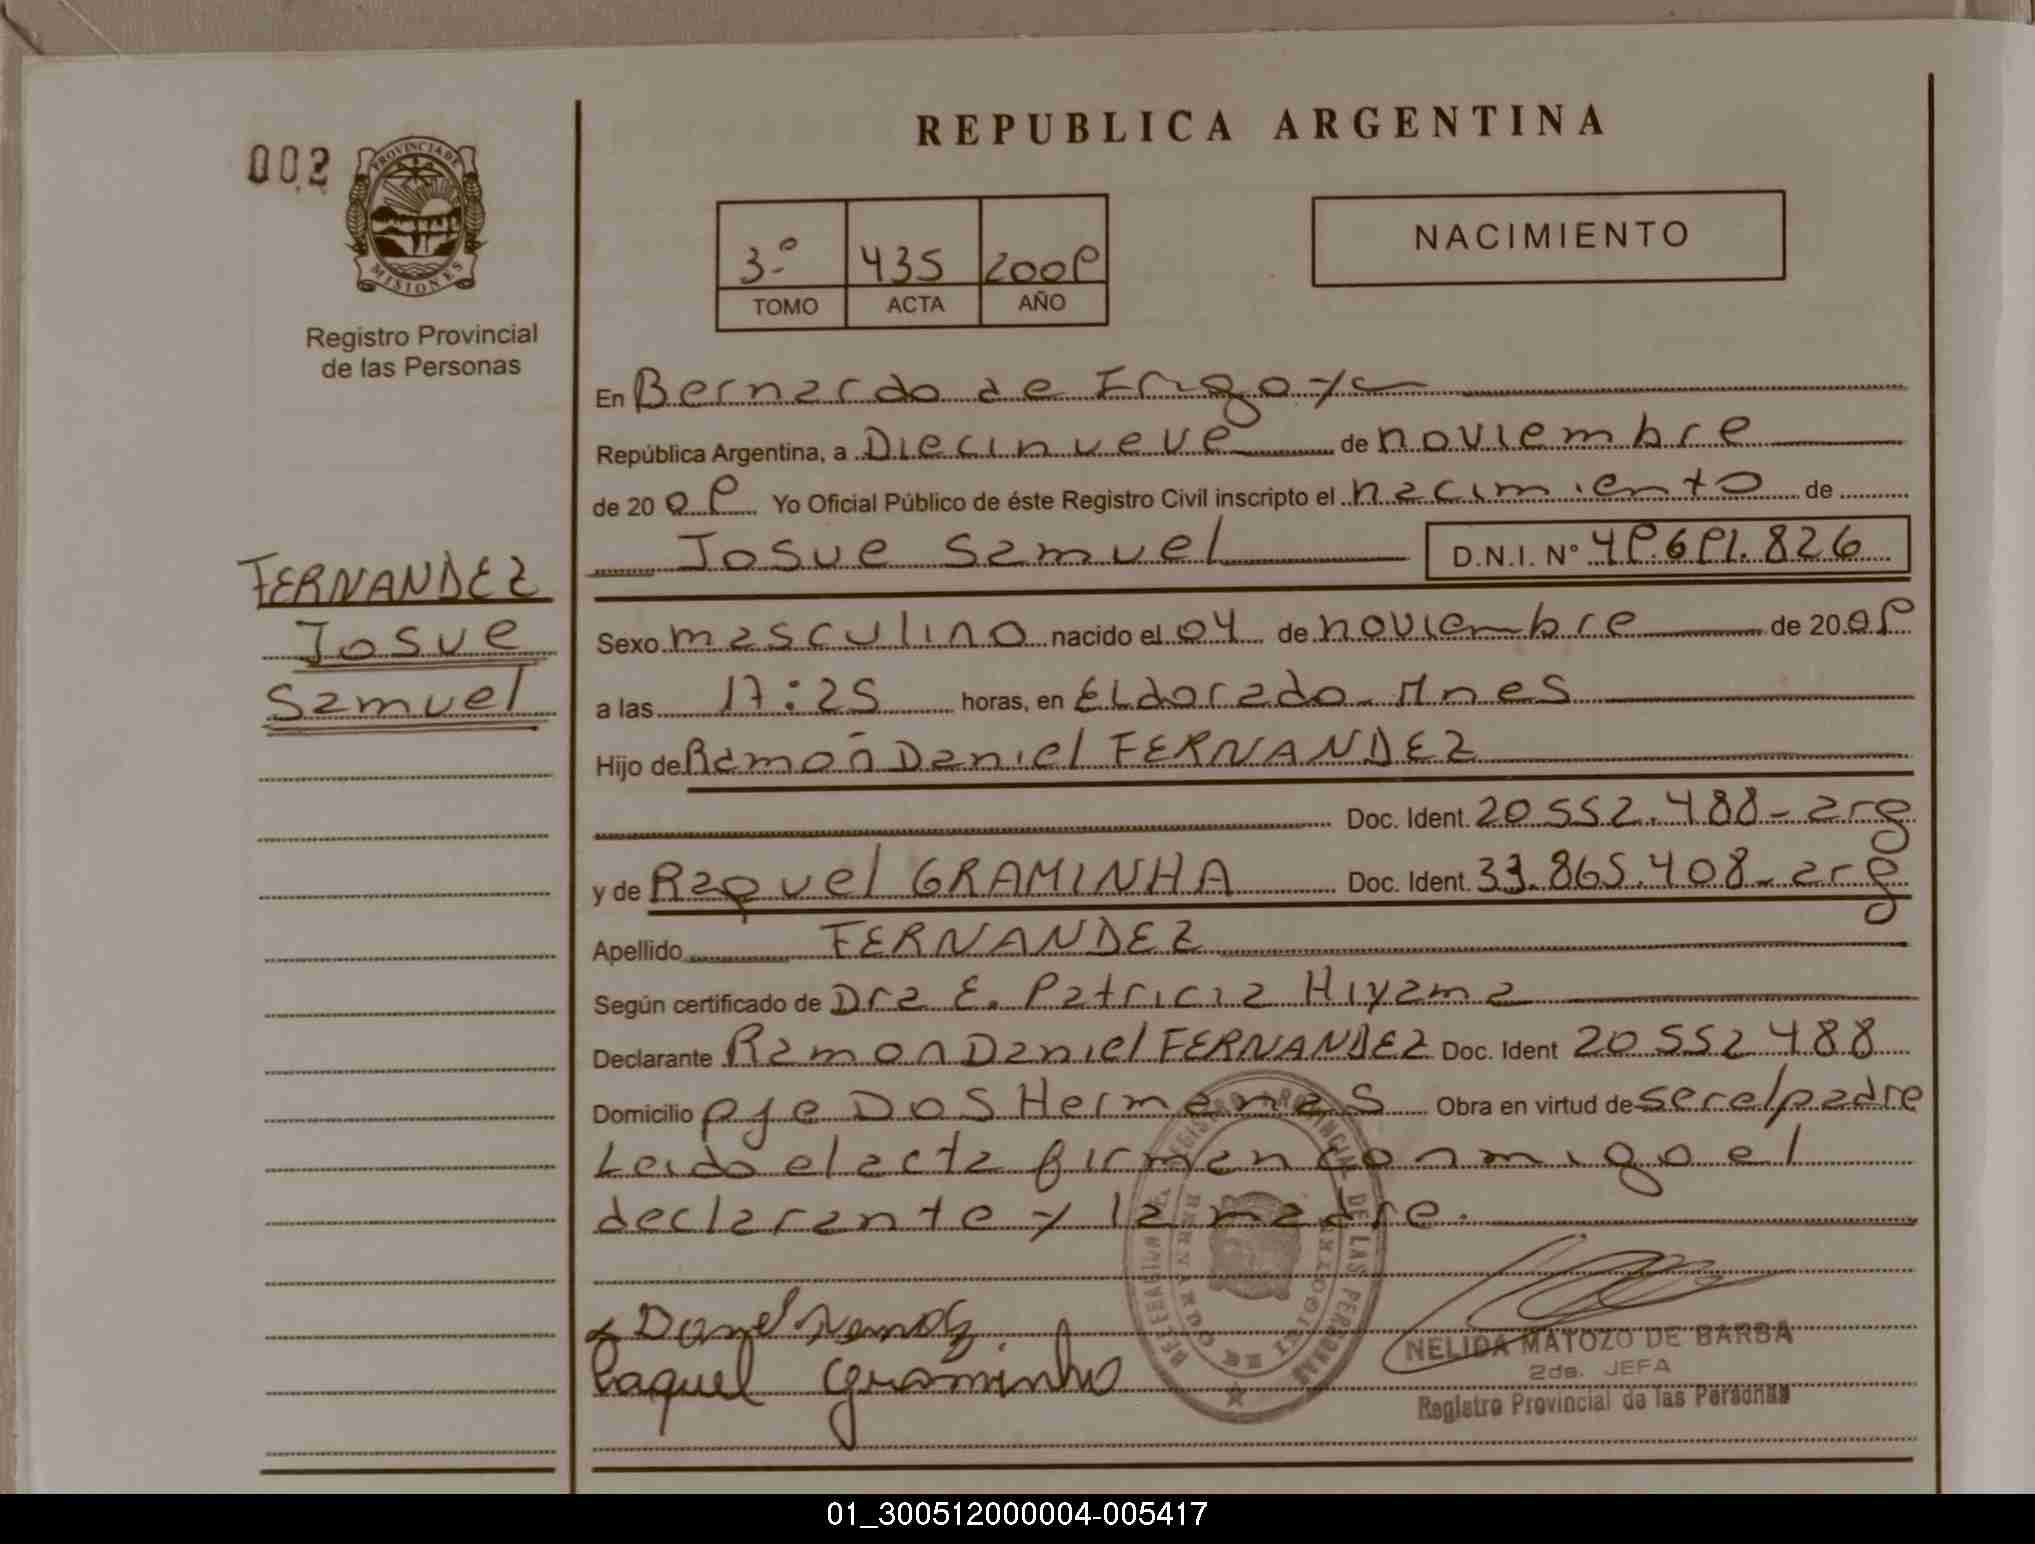 REPUBLICA ARGENTINA
002
PROVINCIA DE
MISIONES
Registro Provincial
de las Personas
3º 435 2009
TOMO ACTA AÑO
NACIMIENTO
En Bernardo de Irigoyen
República Argentina, a Diecinueve de noviembre
de 2009 Yo Oficial Público de éste Registro Civil inscripto el nacimiento de
Josue Samuel D.N.I. Nº 49.691.826
FERNANDEZ
Josue
Samuel
Sexo masculino nacido el 04 de noviembre de 2009
a las 17:25 horas, en Eldorado - Mnes
Hijo de Ramón Daniel FERNANDEZ
Doc. Ident. 20 552.488 - arg
y de Raquel GRAMINHA Doc. Ident. 33.865.408 - arg
Apellido FERNANDEZ
Según certificado de Dra E. Patricia Hiyama
Declarante Ramon Daniel FERNANDEZ Doc. Ident 20 552 488
Domicilio pje Dos Hermanas Obra en virtud de ser el padre
Leido el acta firman conmigo el
declarante y la madre.
Raquel Graminha
REGISTRO PROVINCIAL DE LAS PERSONAS
BERNARDO DE IRIGOYEN
NELIDA MATOZO DE BARBA
2da. JEFA
Registro Provincial de las Personas
01_300512000004-005417